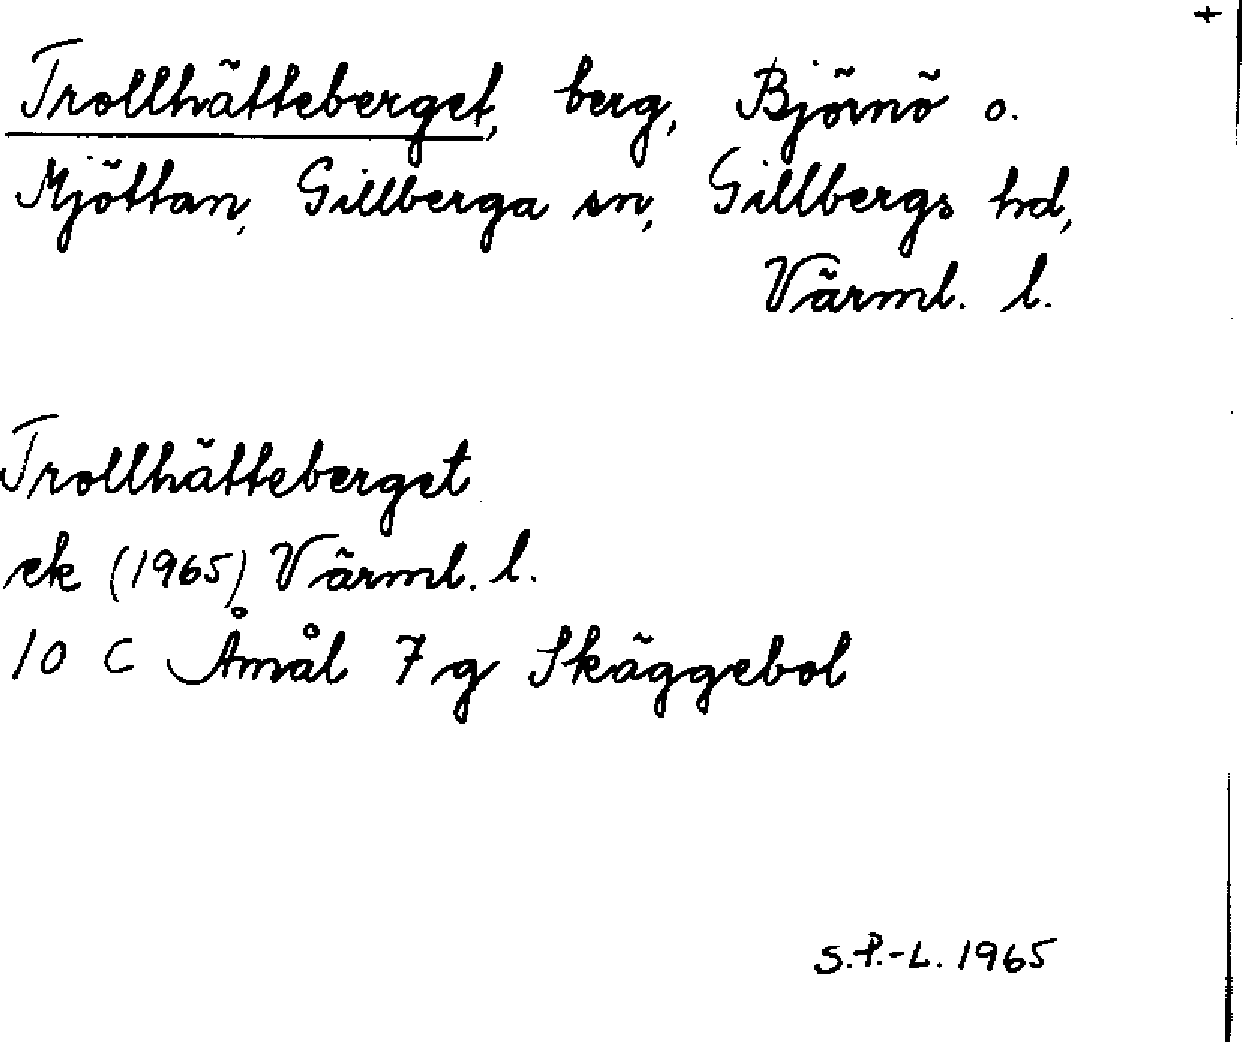 +
Trollhätteberget, berg, Björnö o.
Mjöttan, Gillberga sn, Gillbergs hd,
Värml. l.
Trollhätteberget
ek (1965) Värml. l.
10 C Åmål 7 g Skäggebol
S.P.-L. 1965